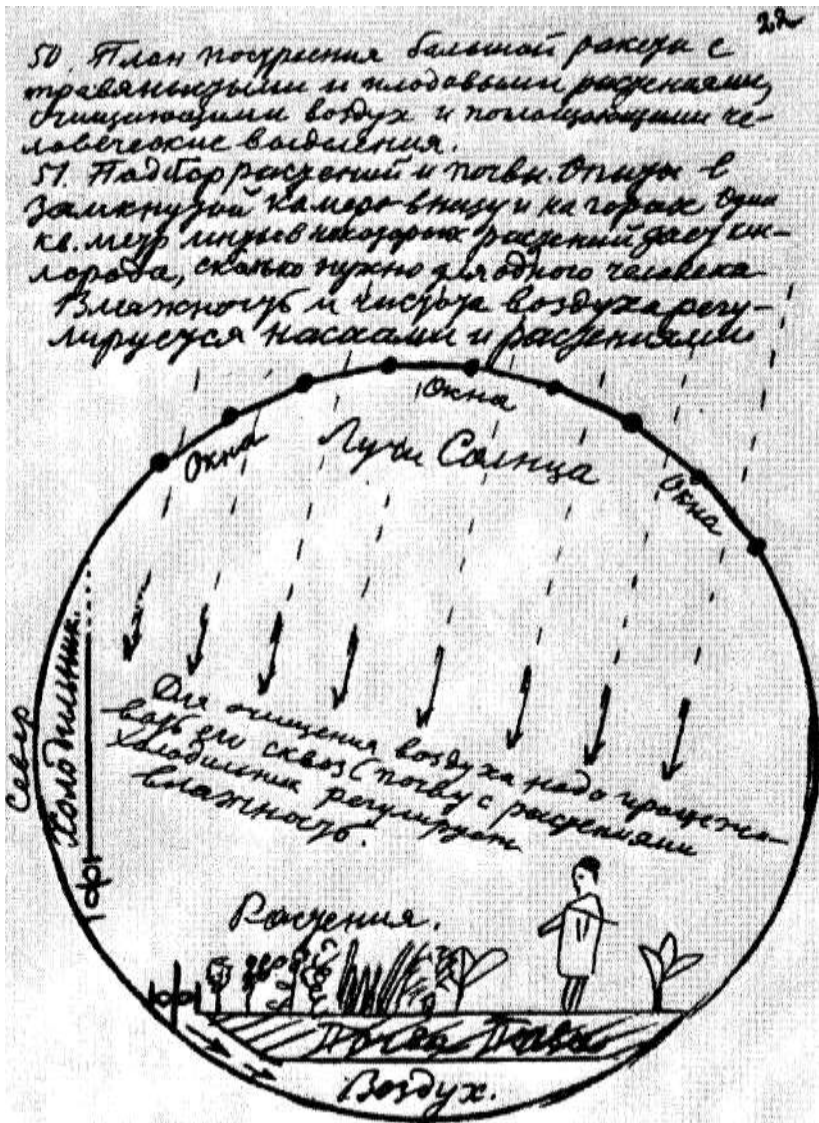 22
50. План построения большой ракеты с
травянистыми и плодовыми растениями,
очищающими воздух и поглощающими че-
ловеческие выделения.
51. Подбор растений и почвы. Опыты в
замкнутой камере внизу и на горах Один
кв. метр листьев некоторых растений дает кис-
лорода, сколько нужно для одного человека
Влажность и чистота воздуха регу-
лируется насосами и растениями
Окна
Окна
Лучи Солнца
Окна
Холодильник.
Север
Для очищения воздуха надо процежи-
вать его сквозь почву с растениями
Холодильник регулирует
влажность.
Растения.
Почва Почва
Воздух.